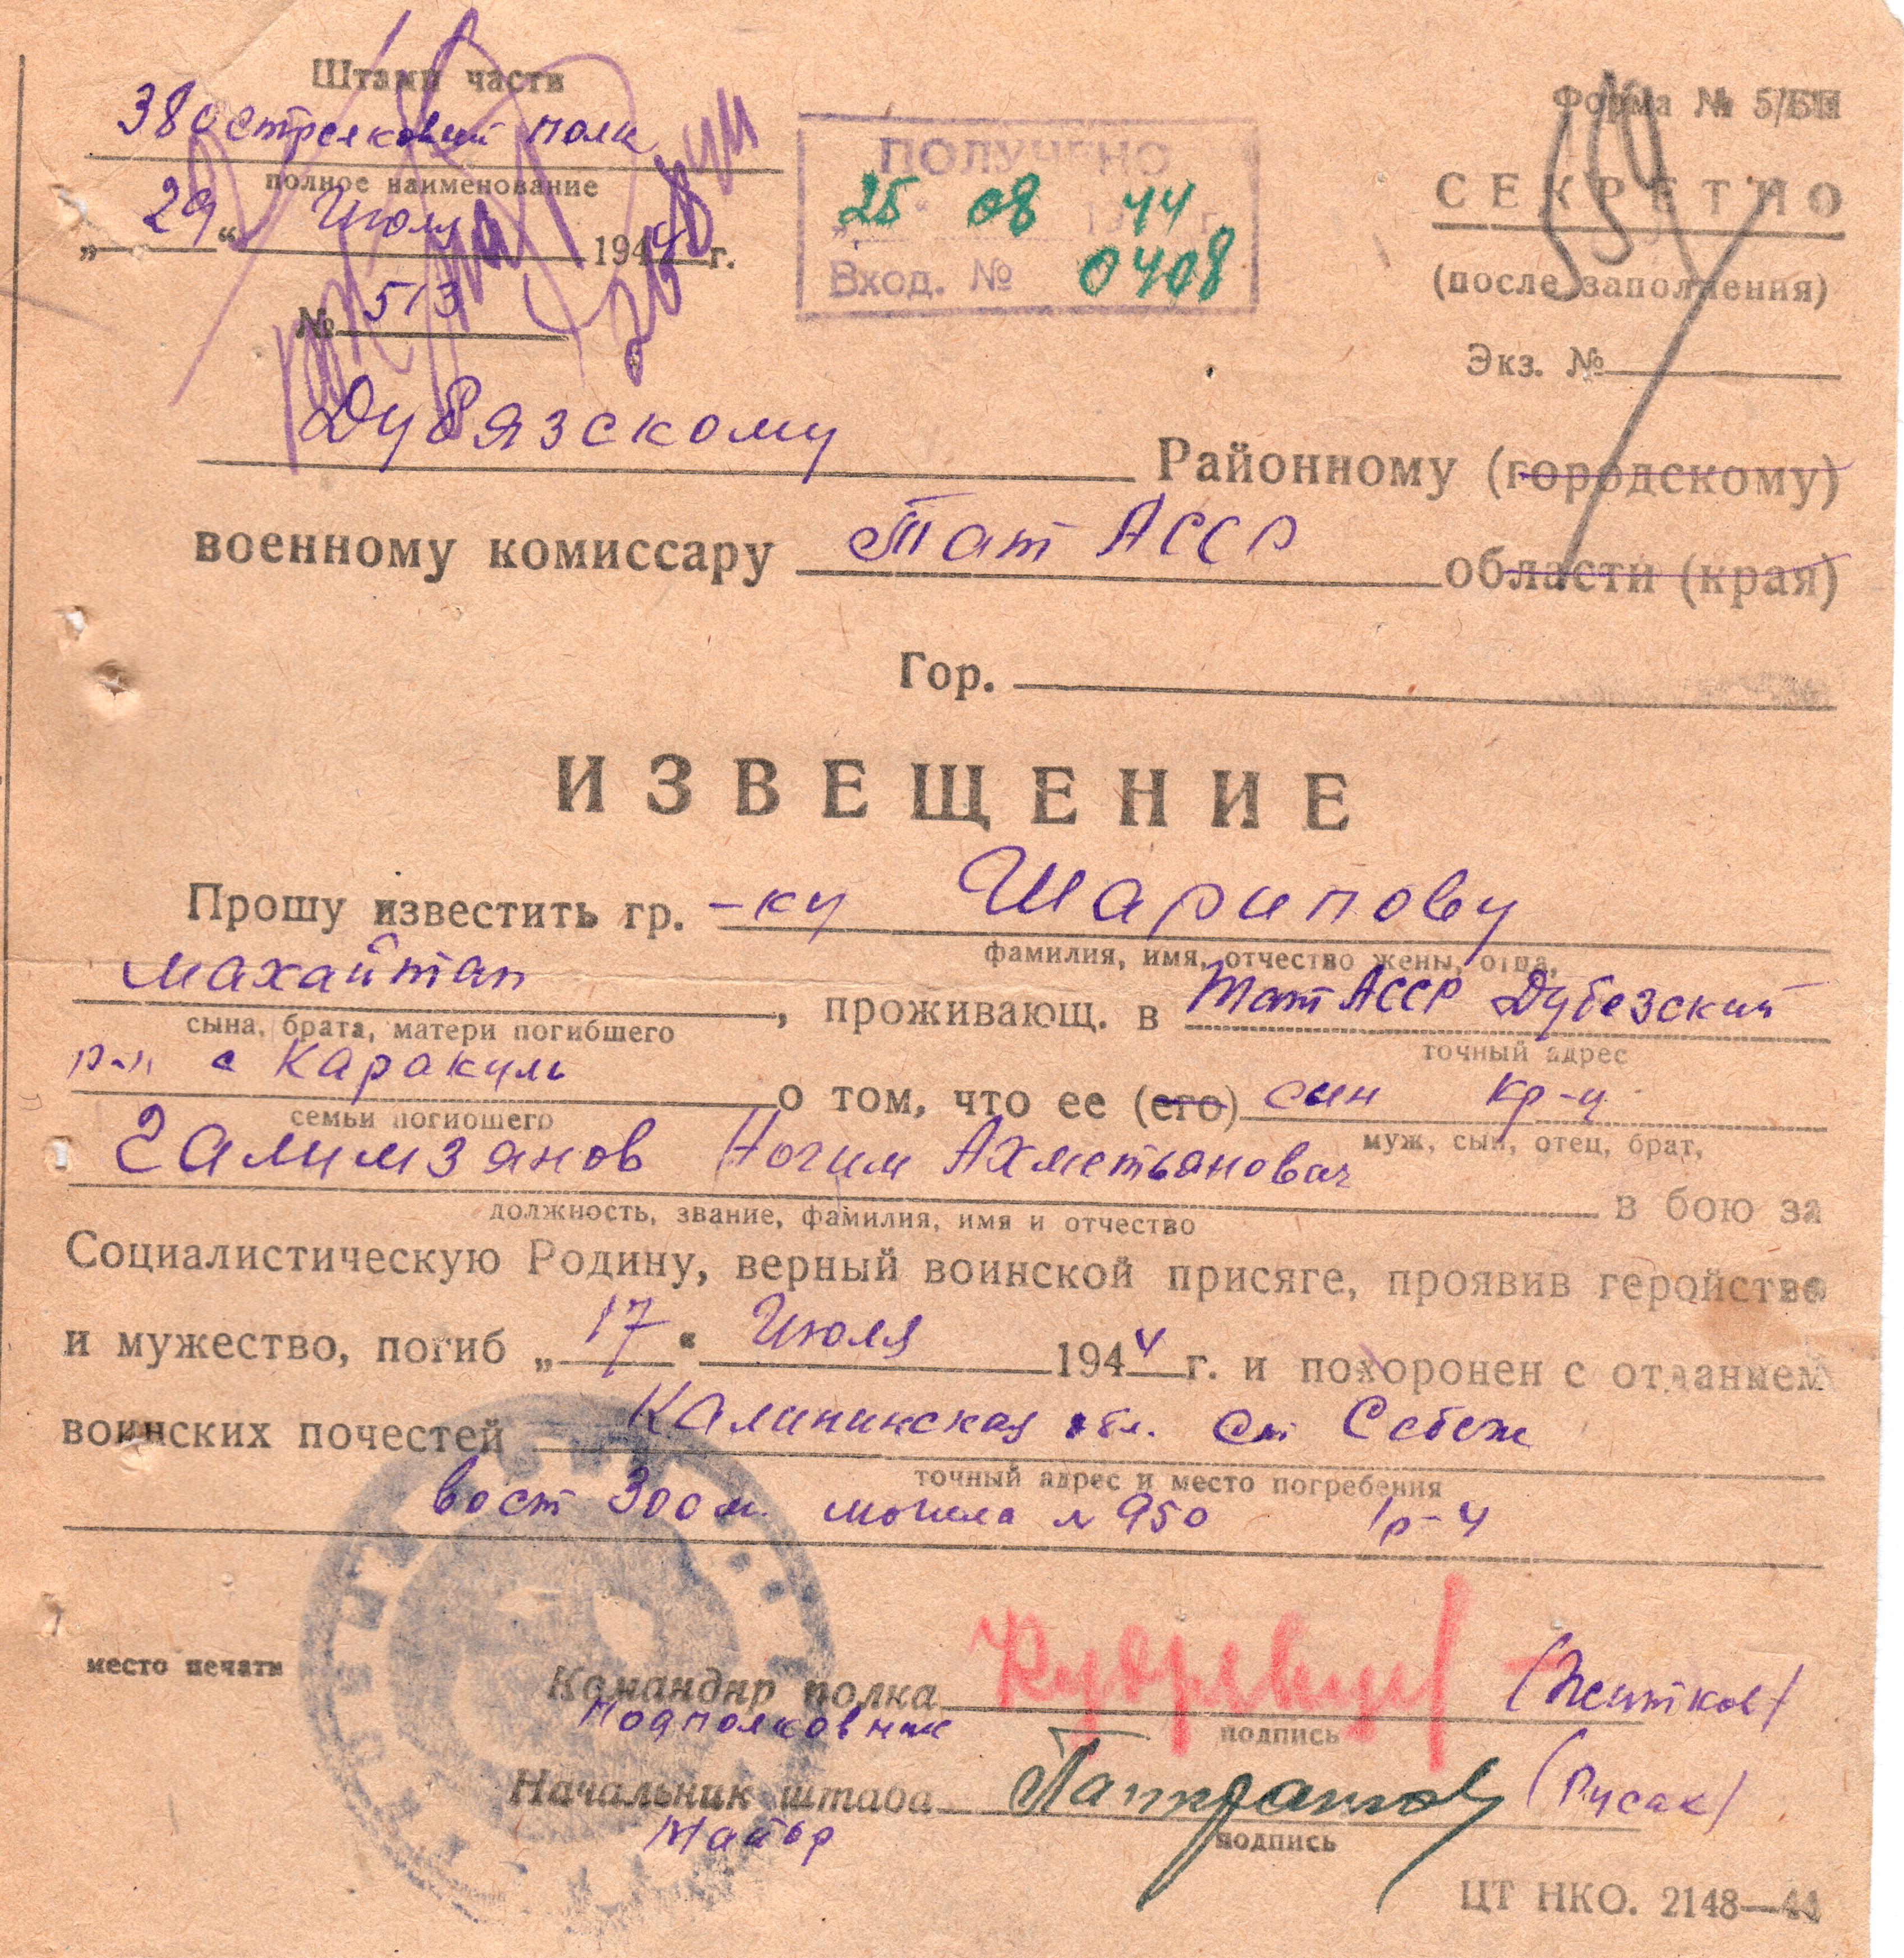 Штамп части
380 стрелковый полк
полное наименование
„29“ Июля 1944 г.
№ 513
ПОЛУЧЕНО
„25“ 08 1944 г.
Вход. № 0408
Форма № 5/БП
СЕКРЕТНО
(после заполнения)
Экз. №
Дубязскому Районному (городскому)
военному комиссару Тат АССР области (края)
Гор.
ИЗВЕЩЕНИЕ
Прошу известить гр. -ку Шарипову
фамилия, имя, отчество жены, отца,
махайтап, проживающ. в Тат АССР Дубезский
сына, брата, матери погибшего
точный адрес
р-н с Каракуль о том, что ее (его) сын кр-ц
семьи погибшего
муж, сын, отец, брат,
Галимзянов Ногим Ахметьянович в бою за
должность, звание, фамилия, имя и отчество
Социалистическую Родину, верный воинской присяге, проявив геройство
и мужество, погиб „17“ Июля 1944 г. и похоронен с отданием
воинских почестей Калининская обл. ст Себеж
точный адрес и место погребения
вост 300 м. могила № 950
место печати
Командир полка (Житков)
Подполковник
подпись
Начальник штаба (Русак)
Майор
подпись
ЦТ НКО. 2148—44